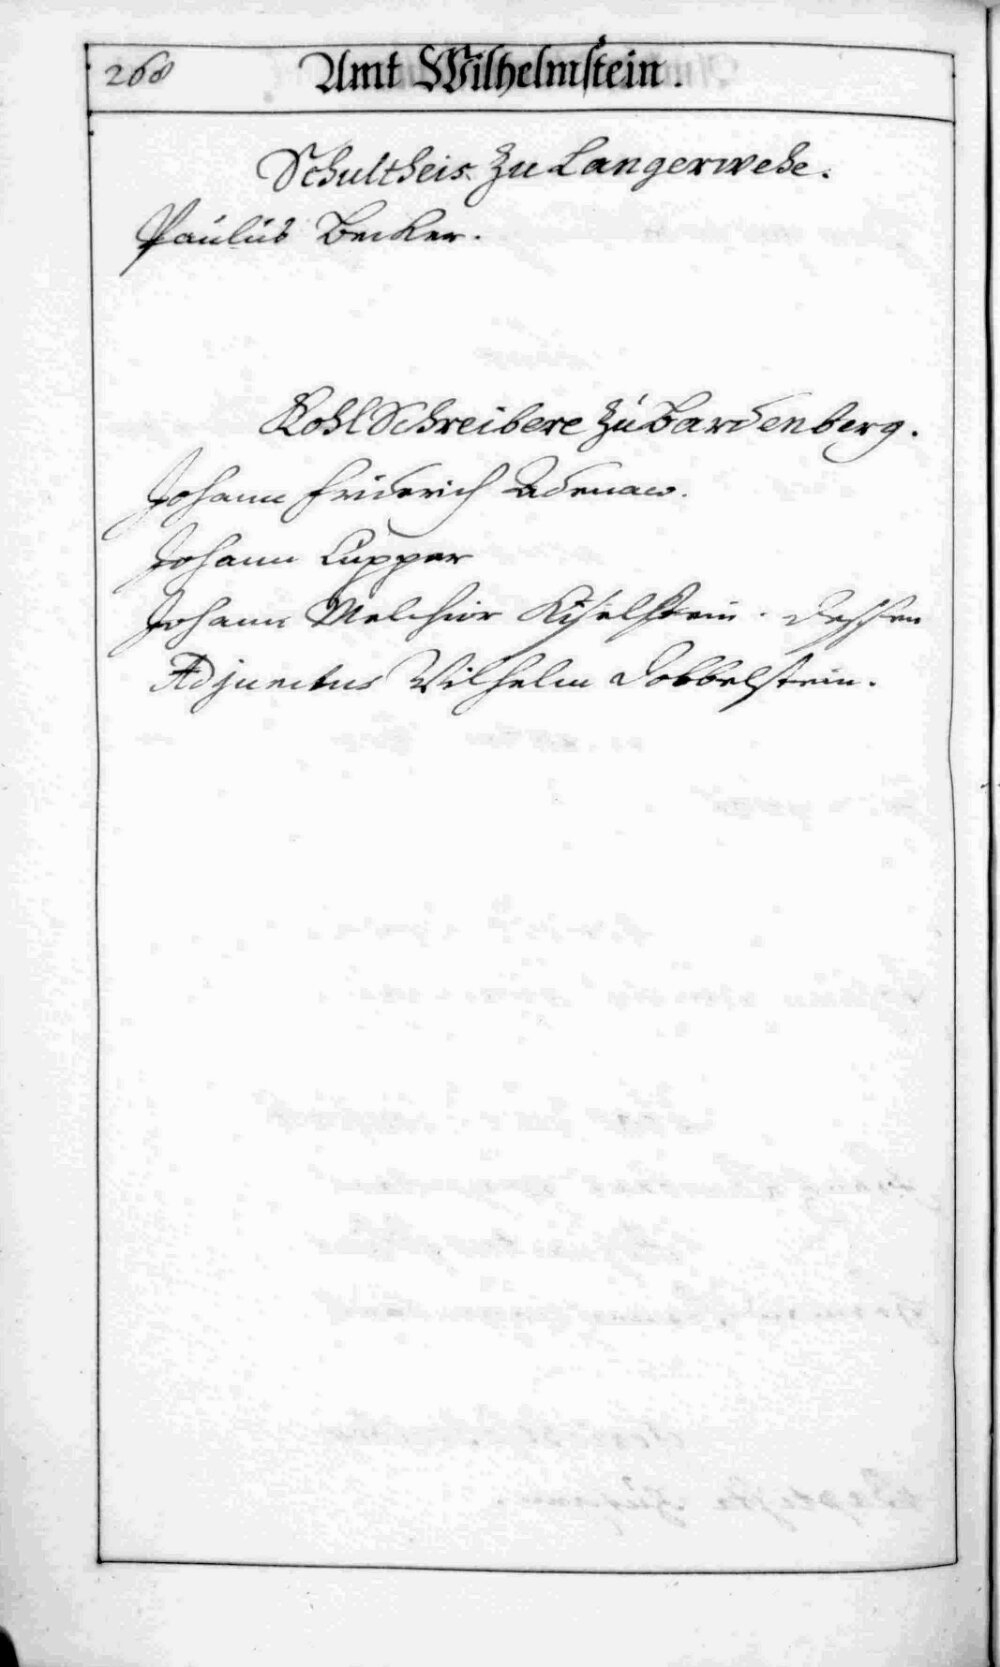 268
Amt Wilhelmstein.
Schultheis zu Langerwehe.
Paulus Becker.
Kohl Schreibere zu Bardenberg.
Johann Friderich Adenaw.
Johann Cupper
Johann Melchior Kiselstein. dessen
Adjunctus Wilhelm Dobbelstein.